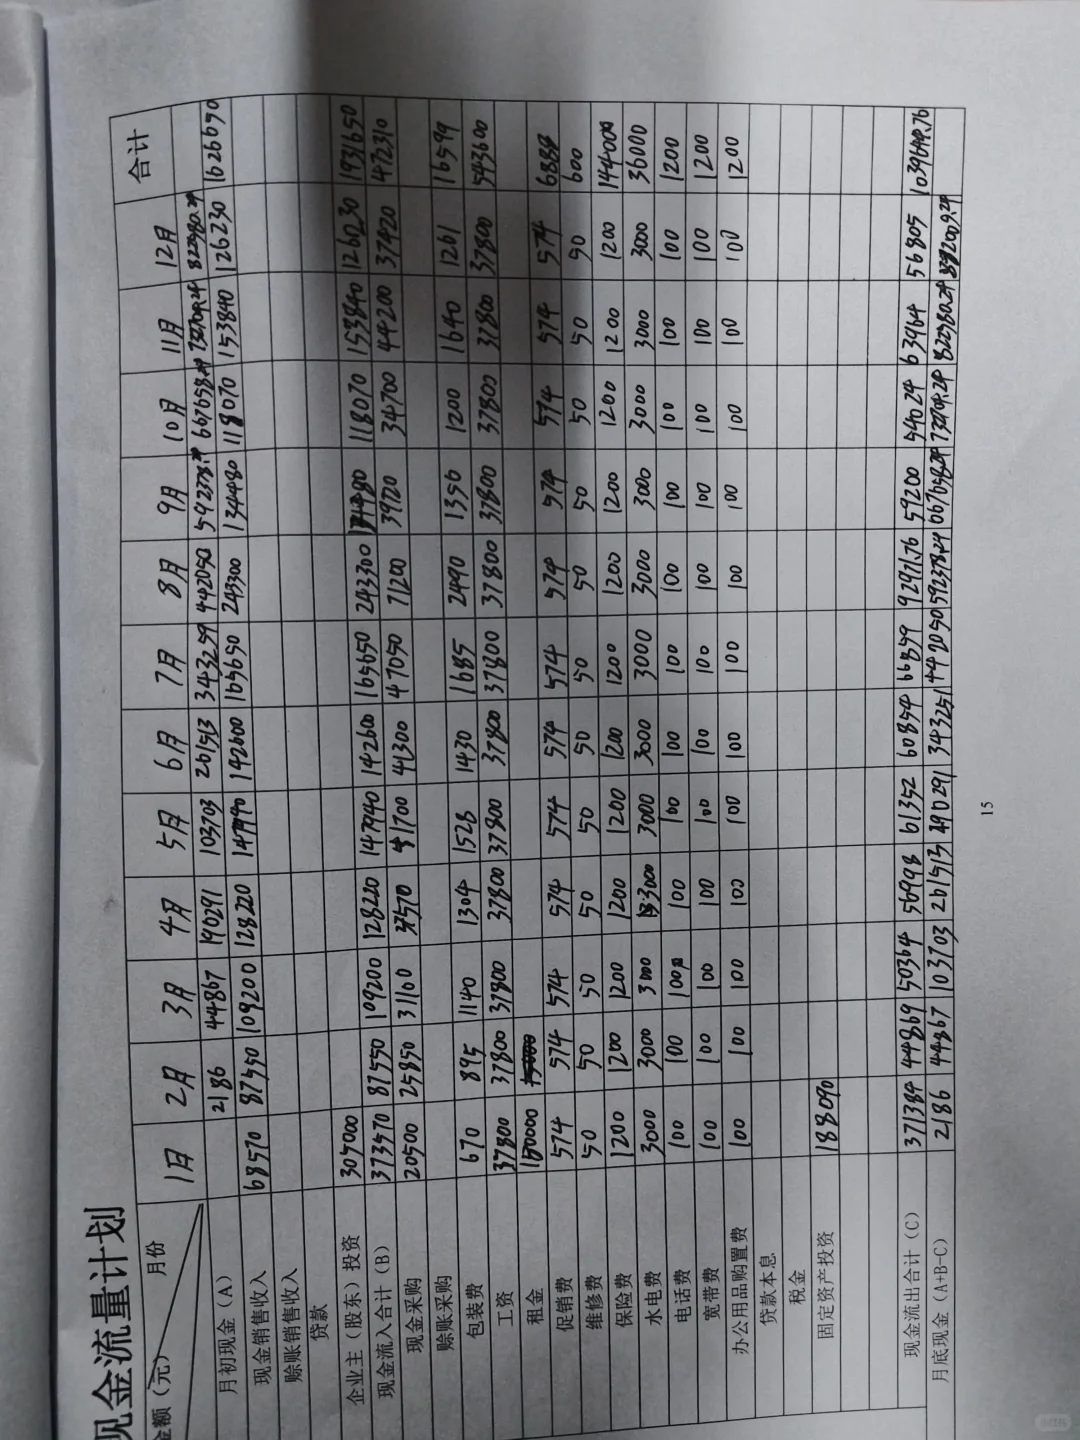 现金流量计划
金额（元） 月份 1月 2月 3月 4月 5月 6月 7月 8月 9月 10月 11月 12月 合计
月初现金（A） 2186 44867 190291 103703 261513 343259 442050 592378.24 667658.24
现金销售收入 68570 87550 109200 128220 147940 142600 165650 243300 134480 118070 153840 126230 1626650
赊账销售收入
贷款
企业主（股东）投资 305000
现金流入合计（B） 373570 87550 109200 128220 147940 142600 165650 243300 118070 153840 126230 1931650
现金采购 20500 25850 31100 41700 41300 47050 71200 39120 34700 44200 37420 472310
赊账采购
包装费 670 895 1140 1304 1528 1430 1685 2490 1356 1200 1640 1261 16599
工资 37800 37800 37800 37800 37800 37800 37800 37800 37800 37800 37800 37800 543600
租金 150000
促销费 574 574 574 574 574 574 574 574 574 574 574 574 6888
维修费 50 50 50 50 50 50 50 50 50 50 50 50 600
保险费 1200 1200 1200 1200 1200 1200 1200 1200 1200 1200 1200 1200 144000
水电费 3000 3000 3000 3000 3000 3000 3000 3000 3000 3000 3000 3000 36000
电话费 100 100 100 100 100 100 100 100 100 100 100 100 1200
宽带费 100 100 100 100 100 100 100 100 100 100 100 100 1200
办公用品购置费 100 100 100 100 100 100 100 100 100 100 100 100 1200
贷款本息
税金
固定资产投资 188090
现金流出合计（C） 371384 44869 50364 56998 61352 60854 66859 92971.76 59200 54024 63464 56805
月底现金（A+B-C） 2186 44867 103703 261513 343251 442050 592378.24 667658.24
15